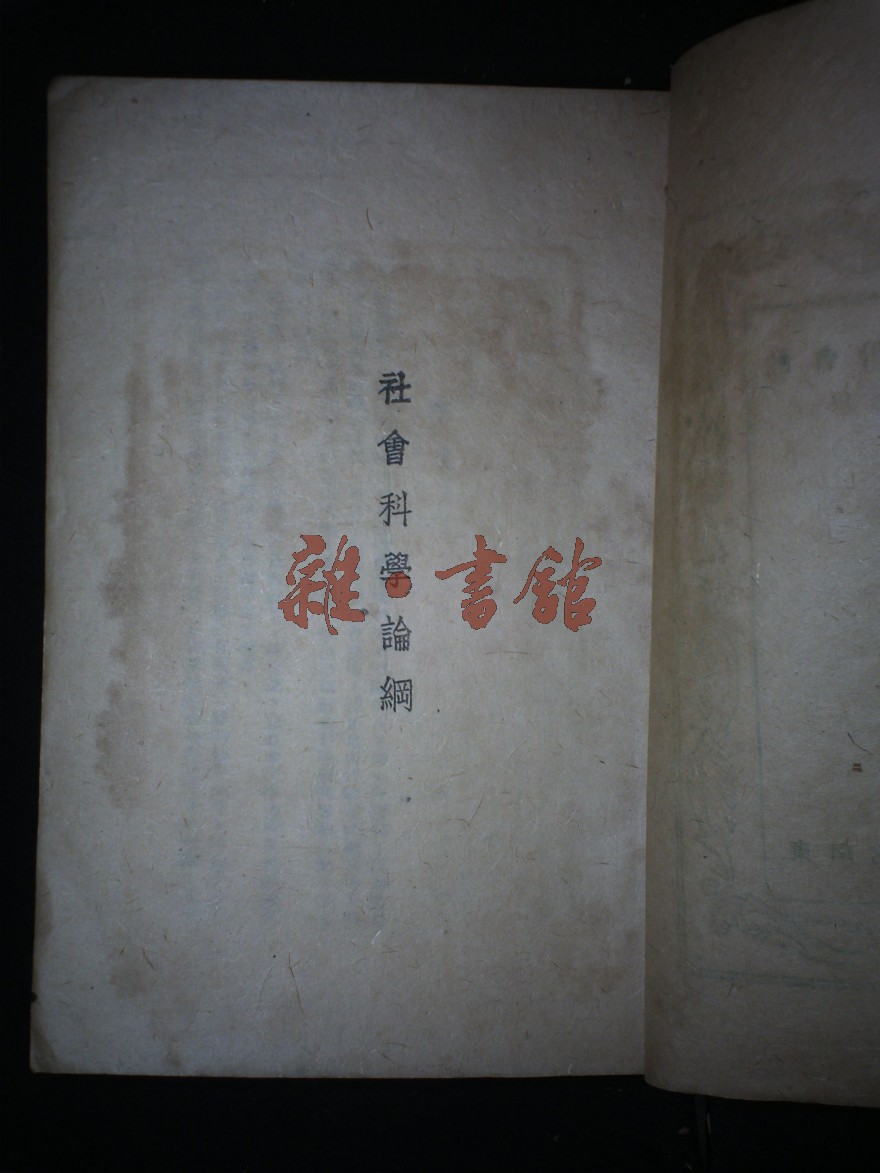 社會科學論綱
雜·書館